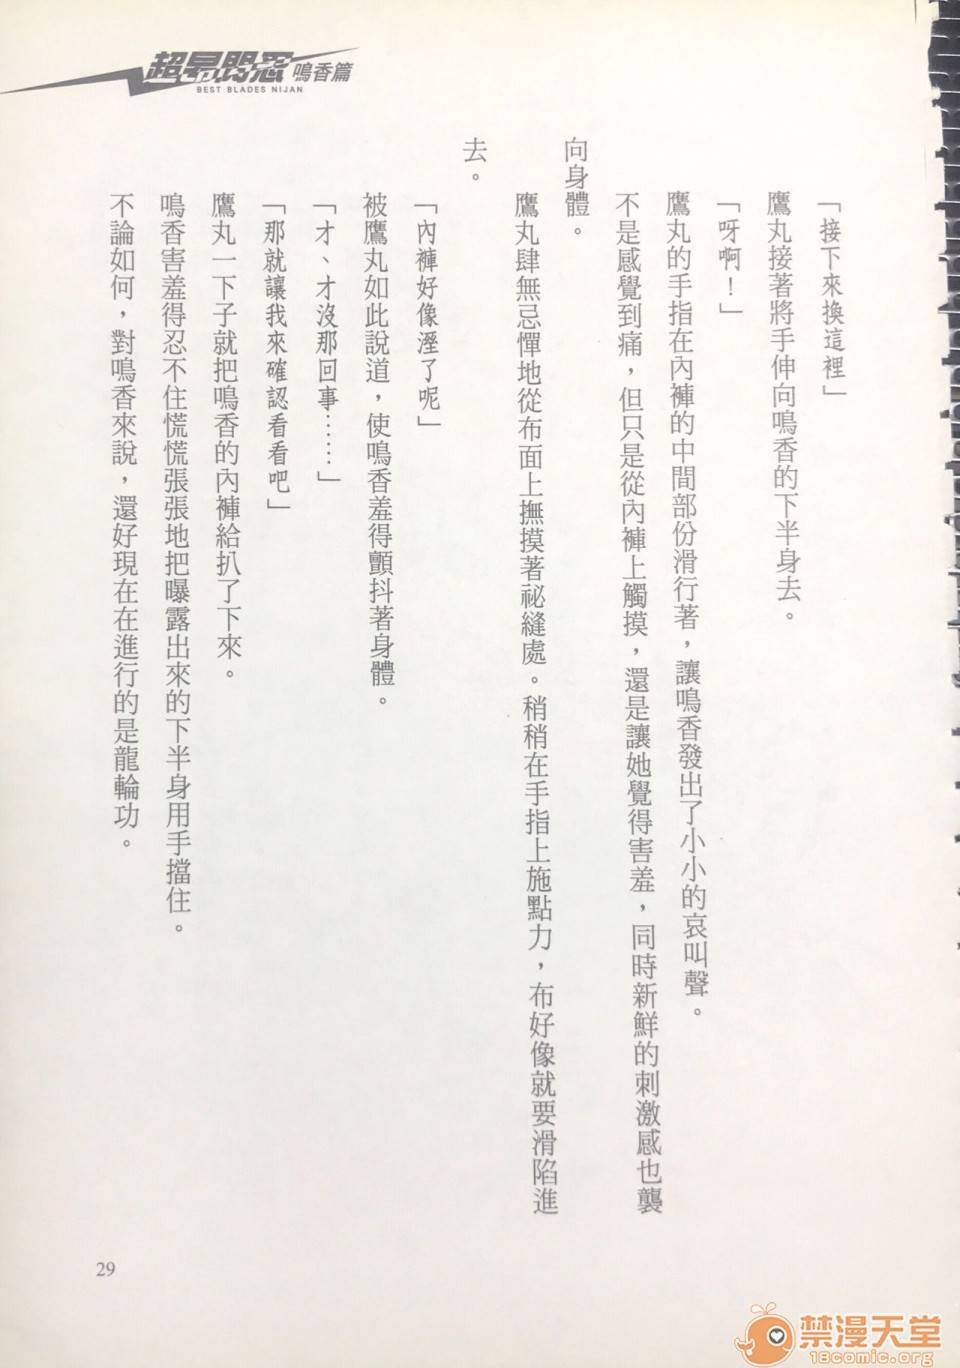 超昂閃忍 鳴香篇
BEST BLADES NIJAN
「接下來換這裡」
鷹丸接著將手伸向鳴香的下半身去。
「呀啊！」
鷹丸的手指在內褲的中間部份滑行著，讓鳴香發出了小小的哀叫聲。
不是感覺到痛，但只是從內褲上觸摸，還是讓她覺得害羞，同時新鮮的刺激感也襲
向身體。
鷹丸肆無忌憚地從布面上撫摸著祕縫處。稍稍在手指上施點力，布好像就要滑陷進
去。
「內褲好像溼了呢」
被鷹丸如此說道，使鳴香羞得顫抖著身體。
「才、才沒那回事……」
「那就讓我來確認看看吧」
鷹丸一下子就把鳴香的內褲給扒了下來。
鳴香害羞得忍不住慌慌張張地把曝露出來的下半身用手擋住。
不論如何，對鳴香來說，還好現在在進行的是龍輪功。
29
禁漫天堂
18comic.org